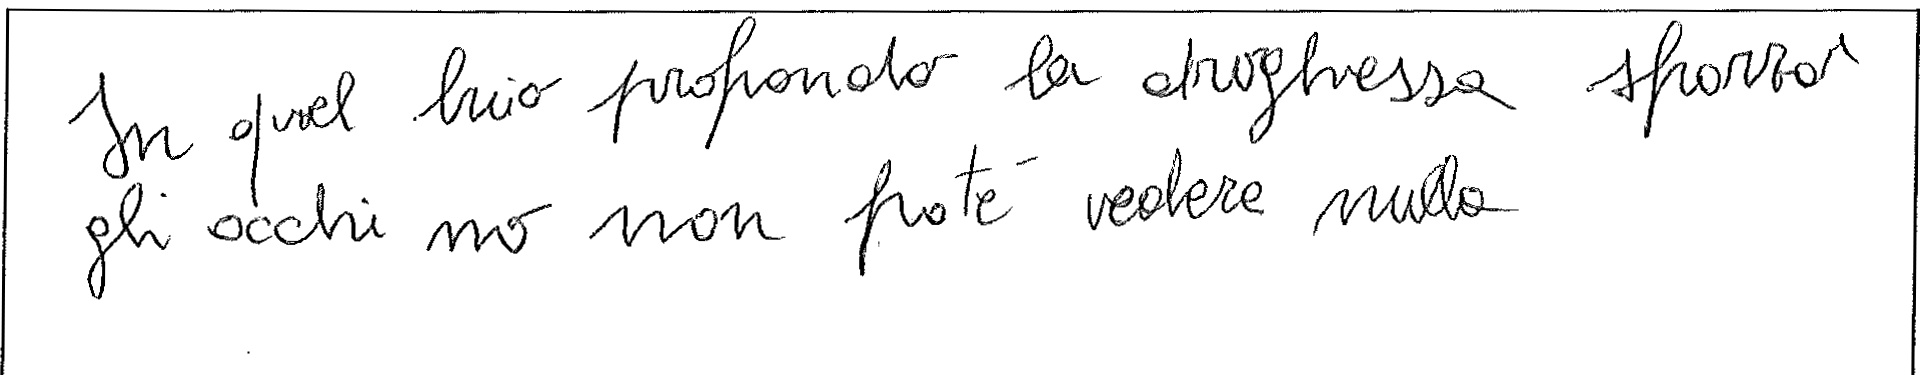 In quel buio profondo la droghessa sforzò
gli occhi mo non poté vedere nulla